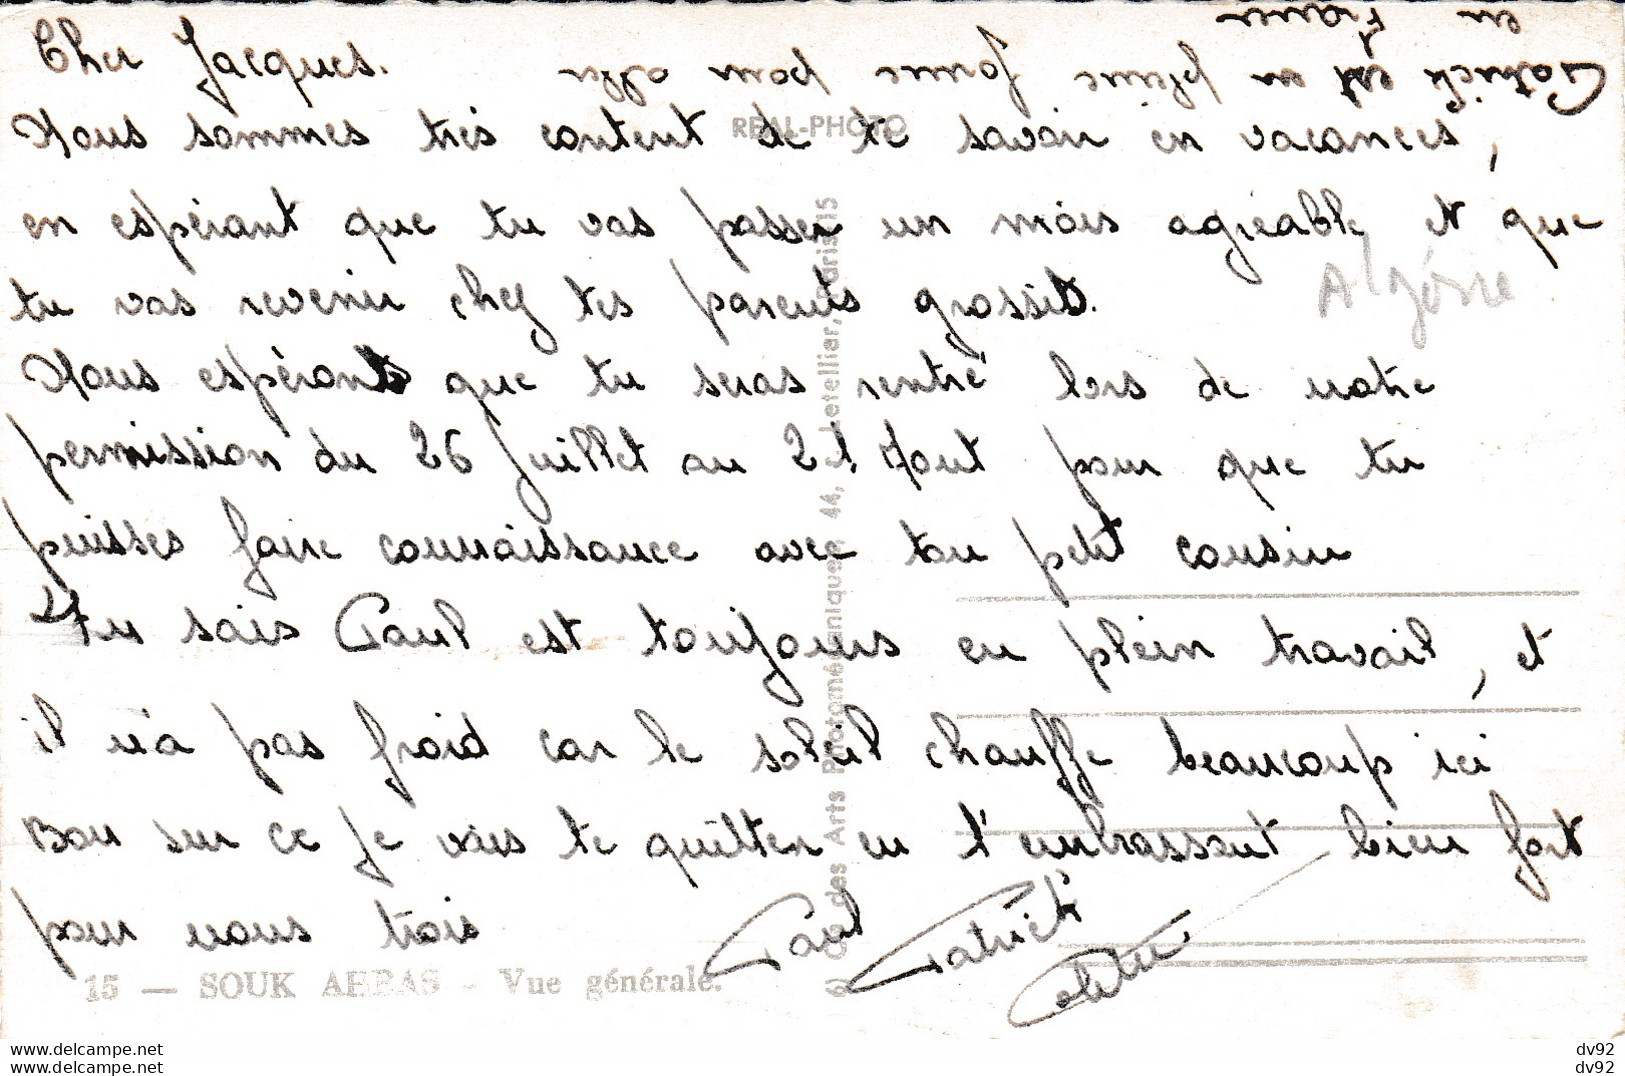 Cher Jacques.
Nous sommes très content de te savoir en vacances,
en espérant que tu vas passer un mois agréable et que
tu vas revenir chez tes parents grossit.
Nous espérons que tu seras rentré lors de notre
permission du 26 Juillet au 21 Aout pour que tu
puisses faire connaissance avec ton petit cousin
Tu sais Paul est toujours en plein travail, et
il n'a pas froid car le soleil chauffe beaucoup ici
Bon sur ce je vais te quitter en t'embrassant bien fort
pour nous trois
Paul Patrick
Patrick est en pleine forme pour aller
en France
Algérie
REAL-PHOTO
des Arts Photomécaniques 44, Letellier, Paris 15
15 — SOUK AHRAS - Vue générale.
dv92
dv92
www.delcampe.net
www.delcampe.net